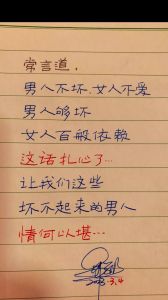 常言道，
男人不坏，女人不爱
男人够坏
女人百般依赖
这话扎心了…
让我们这些
坏不起来的男人
情何以堪…